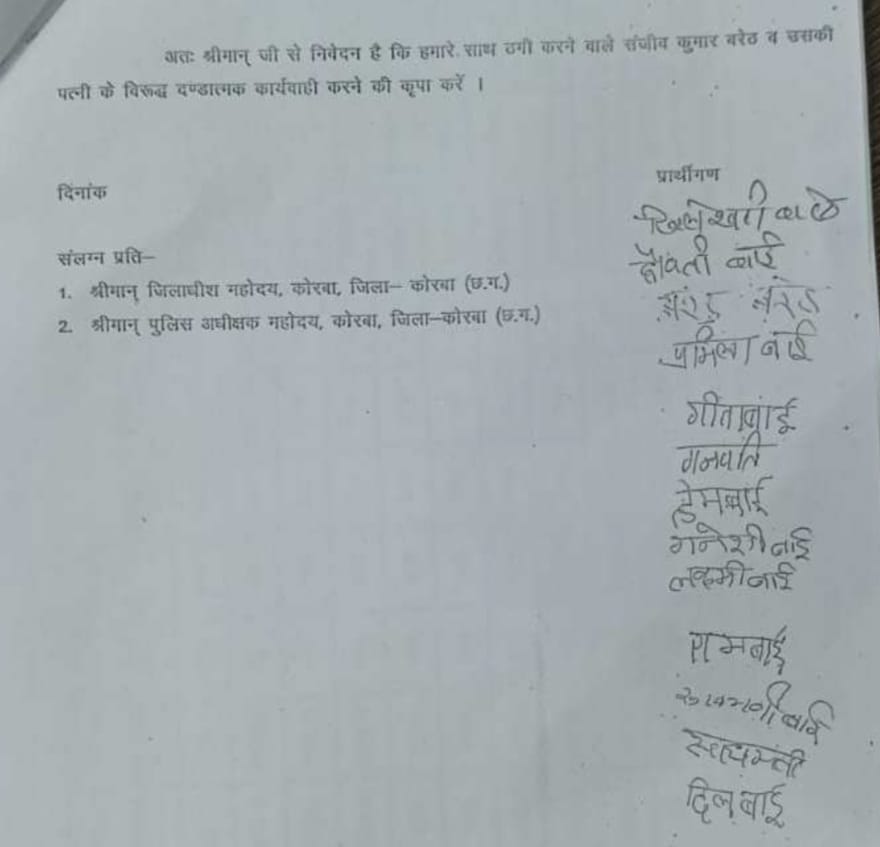 अतः श्रीमान् जी से निवेदन है कि हमारे साथ ठगी करने वाले संजीव कुमार बरेठ व उसकी
पत्नी के विरूद्ध दण्डात्मक कार्यवाही करने की कृपा करें ।
दिनांक
प्रार्थीगण
संलग्न प्रति–
1. श्रीमान् जिलाधीश महोदय, कोरबा, जिला– कोरबा (छ.ग.)
2. श्रीमान् पुलिस अधीक्षक महोदय, कोरबा, जिला–कोरबा (छ.ग.)
बाई
प्रमिला बाई
गीताबाई
गनपति
हेमबाई
गनेशी बाई
लक्ष्मी बाई
रामबाई
बाई
दिलबाई